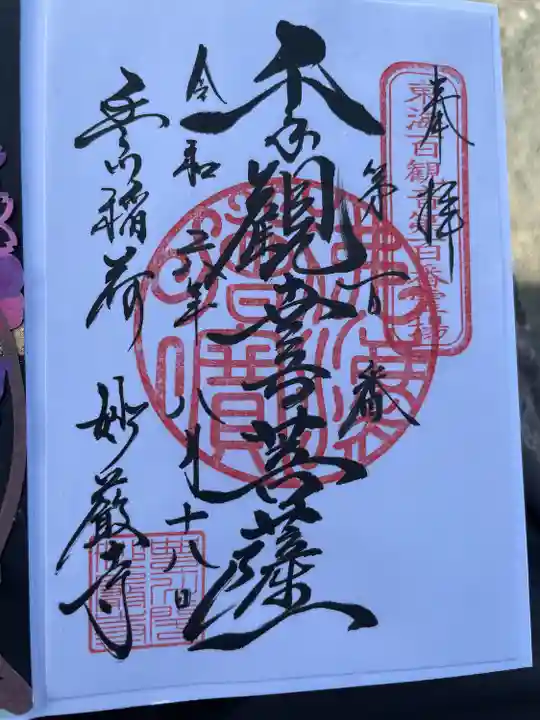 奉拝
東海百観音第百番霊場
第百番
千手観世音菩薩
令和六年八月十八日
豊川稲荷 妙厳寺